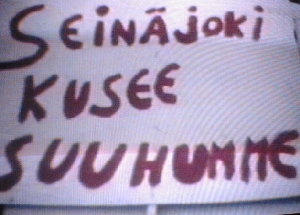 SEINÄJOKI
KUSEE
SUUHUMME